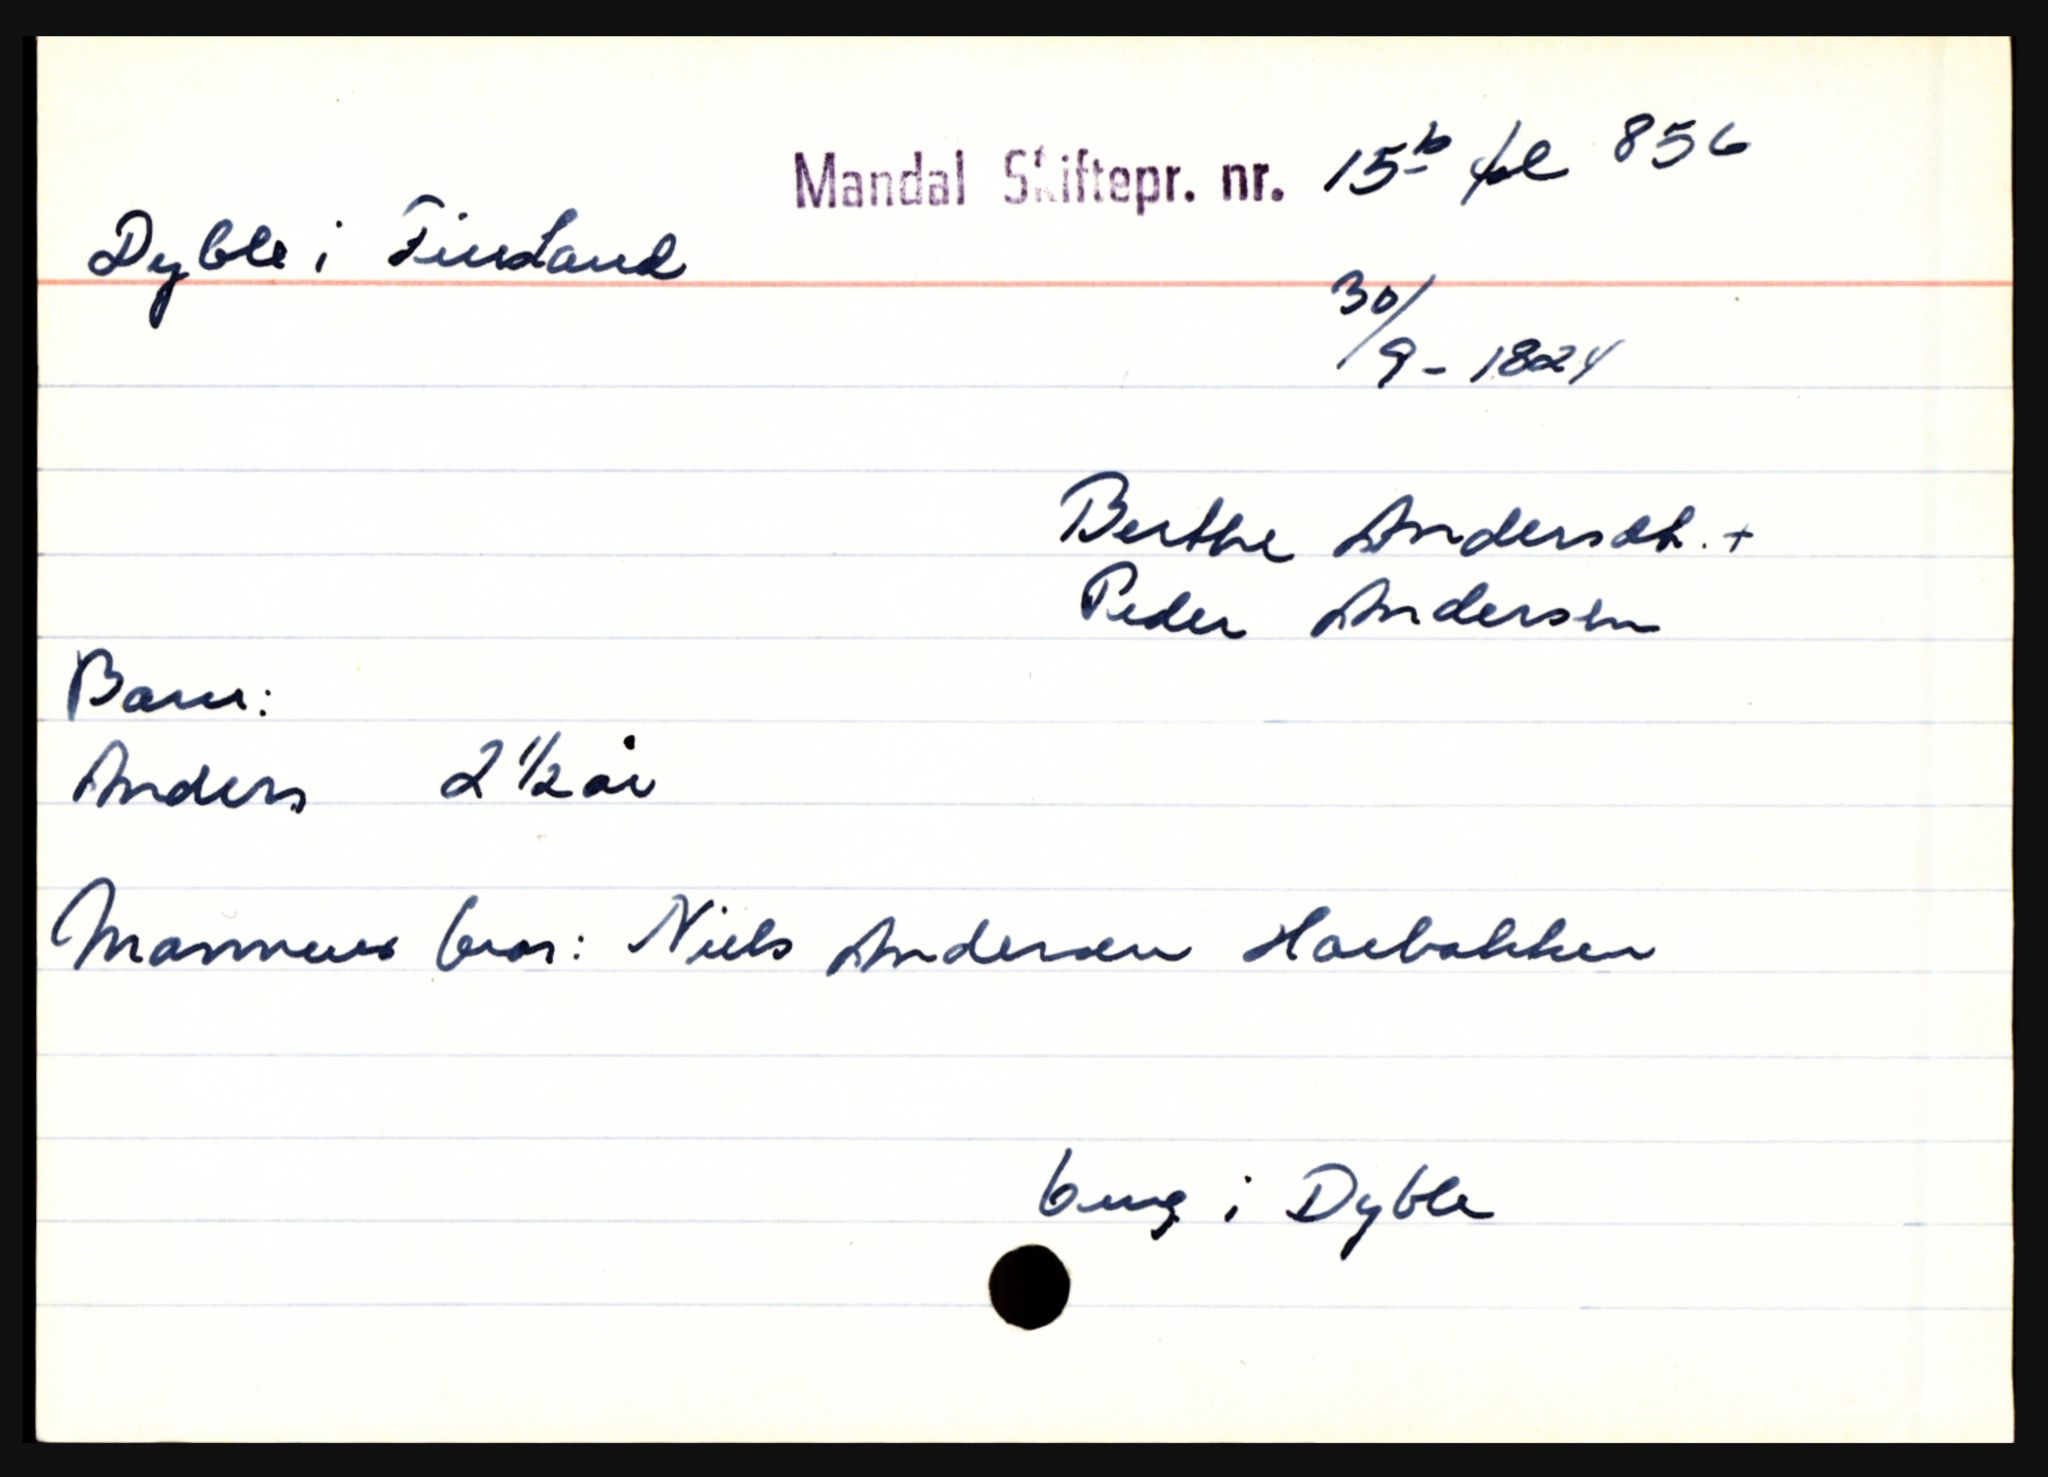 Mandal Skiftepr. nr. 15b fol 856
Dyble i Finsland
30/9 - 1824
Berthe Andersdt. +
Peder Andersen
Barn:
Anders 2 1/2 år
Mannens bror: Niels Andersen Haebakken
brug i Dyble